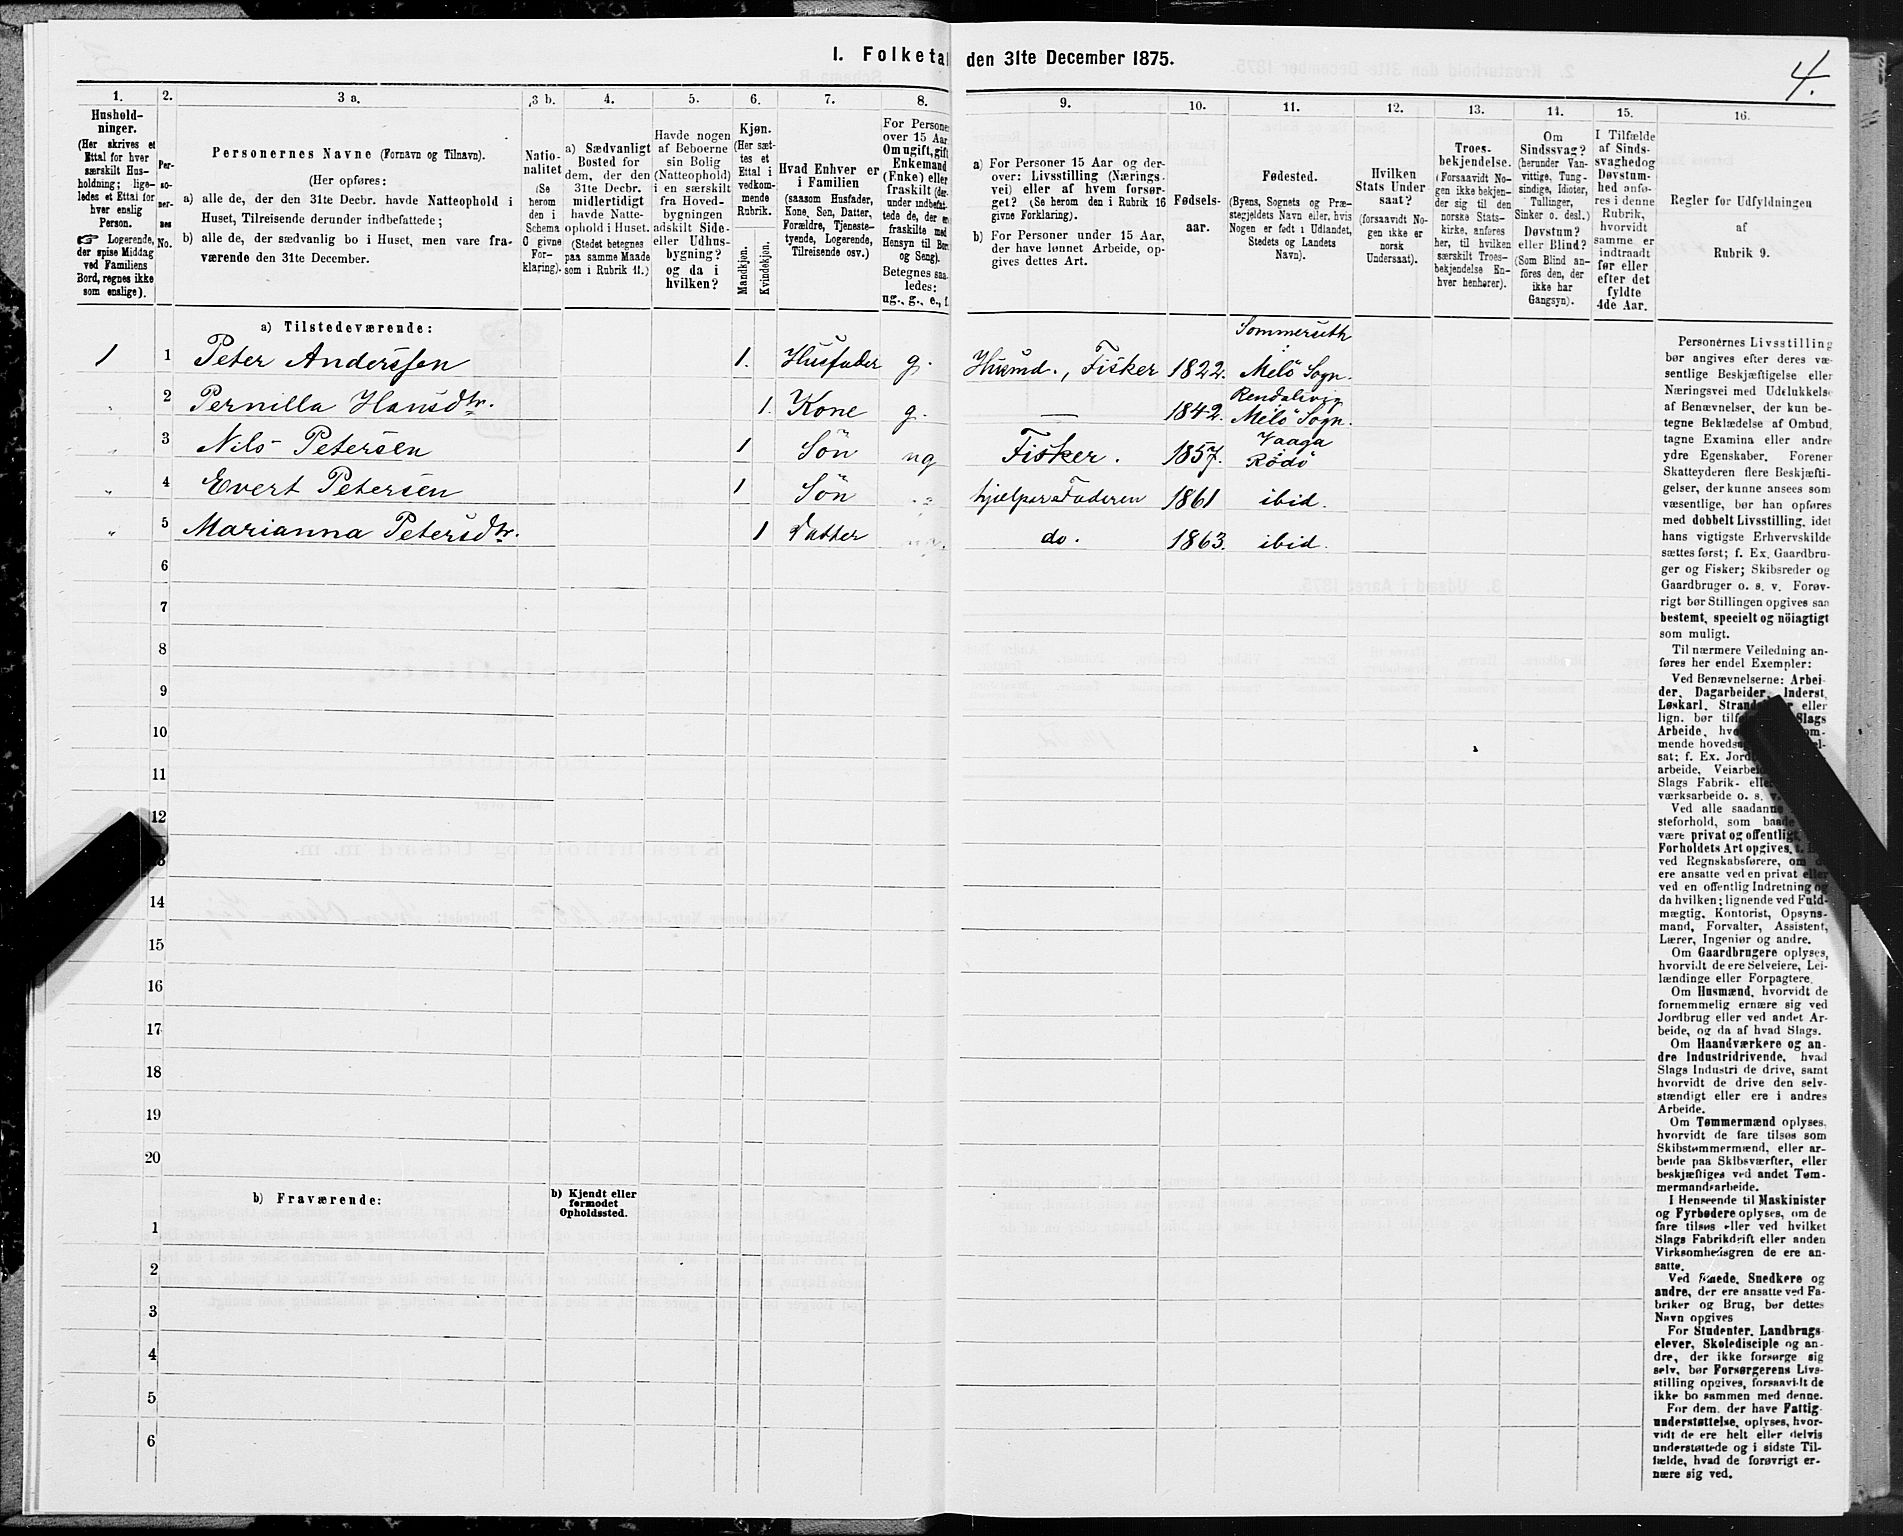 I. Folketal den 31te December 1875.
4.
1. 2. 3 a. 3 b. 4. 5. 6. 7. 8. 9. 10. 11. 12. 13. 14. 15. 16.
Hushold-
ninger.
(Her skrives et
Ettal for hver
særskilt Hus-
holdning; lige-
ledes et Ettal for
hver enslig
Person.
☞ Logerende,
der spise Middag
ved Familiens
Bord, regnes ikke
som enslige).
Per-
so-
ner-
nes
No.
Personernes Navne (Fornavn og Tilnavn).
(Her opføres:
a) alle de, der den 31te Decbr. havde Natteophold i
Huset, Tilreisende derunder indbefattede;
b) alle de, der sædvanlig bo i Huset, men vare fra-
værende den 31te December.
Natio-
nalitet
(Se
herom
den i
Schema
C givne
For-
klaring).
a) Sædvanligt
Bosted for
dem, der den
31te Decbr.
midlertidigt
havde Natte-
ophold i Huset.
(Stedet betegnes
paa samme Maade
som i Rubrik 11.)
Havde nogen
af Beboerne
sin Bolig
(Natteophold)
i en særskilt
fra Hoved-
bygningen
adskilt Side-
eller Udhus-
bygning?
og da i
hvilken?
Kjøn.
(Her sæt-
tes et
Ettal i
vedkom-
mende
Rubrik.
Mandkjøn.
Kvindekjøn.
Hvad Enhver er
i Familien
(saasom Husfader,
Kone, Søn, Datter,
Forældre, Tjeneste-
tyende, Logerende,
Tilreisende osv.)
For Persone
over 15 Aar
Om ugift, gift
Enkemand
(Enke) eller
fraskilt (der-
under indbefat-
tede de, der er
fraskilte med
Hensyn til Bor
og Seng).
Betegnes saa-
ledes:
ug., g., e., f.
a) For Personer 15 Aar og der-
over: Livsstilling (Nærings-
vei) eller af hvem forsør-
get? (Se herom den i Rubrik 16
givne Forklaring).
b) For Personer under 15 Aar,
der have lønnet Arbeide, op-
gives dettes Art.
Fødsels-
aar.
Fødested.
(Byens, Sognets og Præ-
stegjeldets Navn eller, hvis
Nogen er født i Udlandet,
Stedets og Landets
Navn).
Hvilken
Stats Under-
saat?
(forsaavidt No-
gen ikke er
norsk
Undersaat).
Troes-
bekjendelse.
(Forsaavidt No-
gen ikke bekjen-
der sig til den
norske Stats-
kirke, anføres
her, til hvilken
særskilt Troes-
bekjendelse En-
hver henhører).
Om
Sindssvag?
(herunder Van-
vittige, Tung-
sindige, Idioter,
Tullinger,
Sinker o. desl.)
Døvstum?
eller Blind?
(Som Blind an-
føres den, der
ikke har
Gangsyn).
I Tilfælde
af Sinds-
svaghed og
Døvstum-
hed anfø-
res i denne
Rubrik,
hvorvidt
samme er
indtraadt
før eller
efter det
fyldte
4de Aar.
Regler for Udfyldningen
af
Rubrik 9.
a) Tilstedeværende:
1 1 Peter Anderssen 1. Husfader g. Husmd., Fisker 1822. Sommerseth Melö Sogn.
2 Pernilla Hansdtr. 1. Kone g. — 1842. Rendalsvig Melö Sogn.
3 Nils Petersen 1 Sön ug Fisker. 1857. Vaaga Rödö
4 Evert Petersen 1 Sön hjælper Faderen 1861 ibid.
5 Marianna Petersdtr. 1 Datter do. 1863. ibid.
6
7
8
9
10
11
12
14
15
16
17
18
19
20
b) Fraværende:
b) Kjendt eller
formodet
Opholdssted.
1
2
3
4
5
6
Personernes Livsstilling
bør angives efter deres væ-
sentlige Beskjæftigelse eller
Næringsvei med Udelukkelse
af Benævnelser, der kun be-
tegne Beklædelse af Ombud,
tagne Examina eller andre
ydre Egenskaber. Forener
Skatteyderen flere Beskjæfti-
gelser, der kunne ansees som
væsentlige, bør han opføres
med dobbelt Livsstilling, idet
hans vigtigste Erhvervskilde
sættes først; f. Ex. Gaardbru-
ger og Fisker; Skibsreder og
Gaardbruger o. s. v. Forøv-
rigt bør Stillingen opgives saa
bestemt, specielt og nöiagtigt
som muligt.
Til nærmere Veiledning an-
føres her endel Exempler:
Ved Benævnelserne: Arbei-
der, Dagarbeider, Inderst,
Løskarl, eller
lign. bør Slags
Arbeide,
mende
sat; f. Ex.
arbeide,
Slags Fabrik-
værksarbeide o. s. v.
Ved alle saadanne
steforhold, som
være privat og offentligt,
Forholdets Art opgives,
ved Regnskabsførere, om
ere ansatte ved en privat eller
ved en offentlig Indretning og
da hvilken; lignende ved Fuld-
mægtig, Kontorist, Opsyns-
mand, Forvalter, Assistent,
Lærer, Ingeniør og andre.
Om Gaardbrugere oplyses,
hvorvidt de ere Selveiere, Lei-
lændinge eller Forpagtere.
Om Husmænd, hvorvidt de
fornemmelig ernære sig ved
Jordbrug eller ved andet Ar-
beide, og da af hvad Slags.
Om Haandværkere og an-
dre Industridrivende, hvad
Slags Industri de drive, samt
hvorvidt de drive den selv-
stændigt eller ere i andres
Arbeide.
Om Tømmermænd oplyses,
hvorvidt de fare tilsøs som
Skibstømmermænd, eller ar-
beide paa Skibsværfter, eller
beskjæftiges ved andet Tøm-
mermandsarbeide.
I Henseende til Maskinister
og Fyrbødere oplyses, om de
fare tilsøs eller ved hvilket
Slags Fabrikdrift eller anden
Virksomhedsgren de ere an-
satte.
Ved Smede, Snedkere og
andre, der ere ansatte ved Fa-
briker og Brug, bør dettes
Navn opgives
For Studenter, Landbrugs-
elever, Skoledisciple og an-
dre, der ikke forsørge sig
selv, bør Forsørgerens Livs-
stilling opgives, forsaavidt de
ikke bo sammen med denne.
For dem, der have Fattig-
understøttelse, oplyses, hvor-
vidt de ere helt eller delvis
understøttede og i sidste Til-
fælde, hvad de forøvrigt er-
nære sig ved.